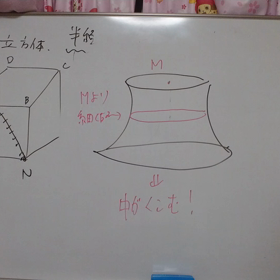 立方体. 半分
D
C
M
B
Mより
細くなる
N
中がくこむ!